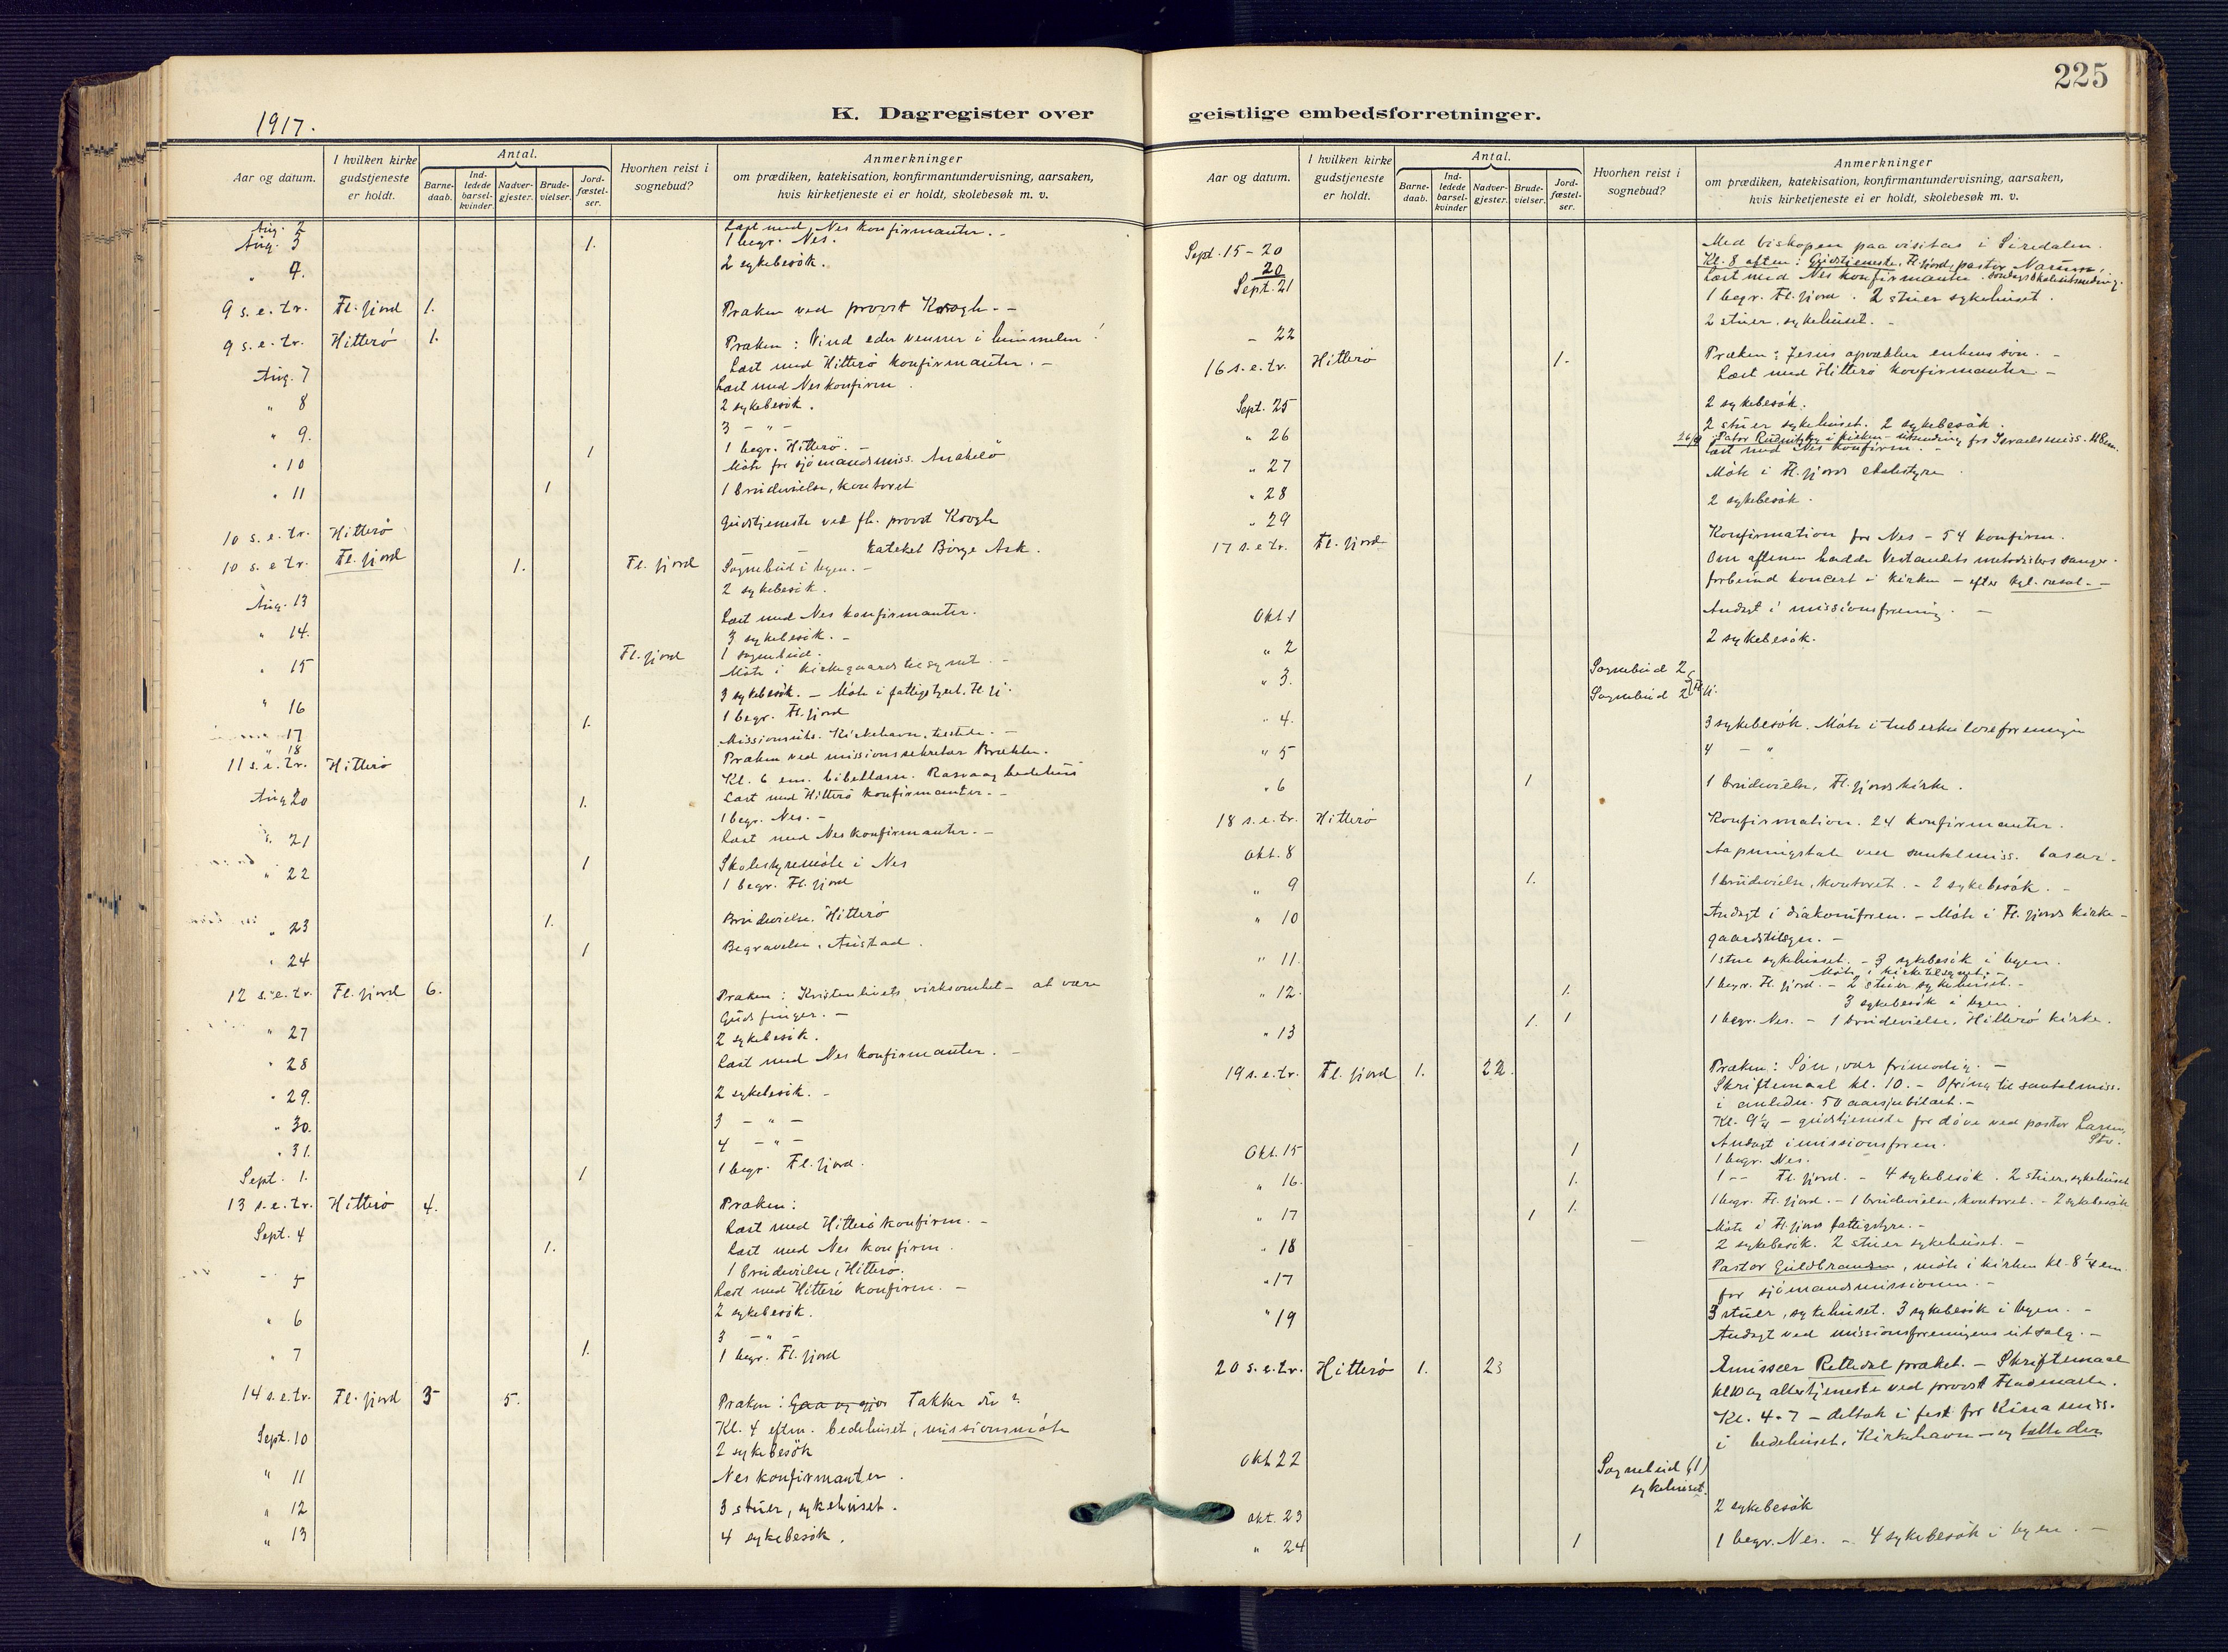 225
1917.
K. Dagregister over
geistlige embedsforretninger.
Aar og datum.
I hvilken kirke
gudstjeneste
er holdt.
Antal.
Barne-
daab.
Ind-
ledede
barsel-
kvinder.
Nadver-
gjester.
Brude-
vielser.
Jord-
fæstel-
ser.
Hvorhen reist i
sognebud?
Anmerkninger
om prædiken, katekisation, konfirmantundervisning, aarsaken,
hvis kirketjeneste ei er holdt, skolebesøk m. v.
Aug. 2 Læst med Nes konfirmanter. -
Aug. 3 1. 1 begr. Nes.
" 4. 2 sykebesök.
9 s. e. tr. Fl. fjord 1. Præken ved provst Krogh. -
9 s. e. tr. Hitterö 1. Præken: Vind eder venner i himmelen!
Læst med Hitterö konfirmanter. -
Aug. 7 Læst med Nes konfirm.
" 8 2 sykebesök.
" 9. 3 - " -
" 10 1 1 begr. Hitterö. -
Möte for sjömandsmiss. Anabelö
" 11 1 1 brudevielse, kontoret
10 s. e. tr. Hitterö Gudstjeneste ved fh. provst Krogh
10 s. e. tr. Fl. fjord - kateket Börge Ask.
1. Fl. fjord Sognebud i byen. -
Aug. 13 2 sykebesök.
" 14. Læst med Nes konfirmanter.
3 sykebesök. -
" 15 Fl. fjord 1 sognebud.
Möte i kirkegaardstilsynet. -
" 16 3 sykebesök. - Möte i fattigstyret. Fl. fj.
" 17 1. 1 begr. Fl. fjord
" 18 Missionsuts. Kirkehavn,
11 s. e. tr. Hitterö Præken ved missionssekretær
Kl. 6 em. bibellæsn. Rasvaag bedehus
Aug 20 1. Læst med Hitterö konfirmanter. -
1 begr. Nes. -
" 21 Læst med Nes konfirmanter. -
" 22 1 Skolestyremöte i Nes
1 begr. Fl. fjord
" 23 1. Brudevielse. Hitterö
" 24 1 Begravelse. Austad.
12 s. e. tr. Fl. fjord 6. Præken: Kristenlivets virksomhet - at være
Guds finger. -
" 27 2 sykebesök.
" 28 Læst med Nes konfirmanter. -
" 29. 2 sykebesök. -
" 30. 3 - " -
" 31. 4 - " -
Sept. 1. 1 1 begr. Fl. fjord.
13 s. e. tr. Hitterö 4. Præken:
Læst med Hitterö konfirm. -
Sept. 4 1. Læst med Nes konfirm.
1 brudevielse, Hitterö.
" 5 Læst med Hitterö konfirm. -
" 6 2 sykebesök.
3 - " -
" 7 1. 1 begr. Fl. fjord
14 s. e. tr. Fl. fjord 3 5. Præken: Gaa og gjör Takker du?
Kl. 4 eftm. bedehuset, missionsmöte
Sept. 10 2 sykebesök
" 11 Nes konfirmanter.
" 12 3 stuer, sykehuset.
" 13 4 sykebesök.
Aar og datum.
I hvilken kirke
gudstjeneste
er holdt.
Antal.
Barne-
daab.
Ind-
ledede
barsel-
kvinder
Nadver-
gjester.
Brude-
vielser.
Jord-
fæstel-
ser.
Hvorhen reist i
sognebud?
Anmerkninger
om prædiken, katekisation, konfirmantundervisning, aarsaken,
hvis kirketjeneste ei er holdt, skolebesøk m. v.
Sept. 15 - 20 Med biskopen paa visitas i Siredalen.
20 Kl. 8 aften: Gudstjeneste, Fl. fjord, pastor Narum,
Sept. 21 Læst med Nes konfirmanter.
1 begr. Fl. fjord. 2 stuer sykehuset.
- 22 2 stuer, sykehuset. -
16 s. e. tr. Hitterö 1. Præken: Jesus opvækker enkens sön. -
Læst med Hitterö konfirmanter. -
Sept. 25 2 sykebesök.
" 26 2 stuer sykehuset. 2 sykebesök.
26/9 Pastor i kirken - for Israelsmiss. kl 8 em.
" 27 Læst med Nes konfirm. -
Möte i Fl. fjords skolestyre.
" 28 2 sykebesök.
" 29
17 s. e. tr. Fl. fjord Konfirmation for Nes - 54 konfirm.
Om aftenen hadde Vestlandets metodisters sanger-
forbund koncert i kirken - efter kgl. resol. -
Okt 1 Andagt i missionsforening. -
" 2 2 sykebesök.
" 3. Sognebud 2
Sognebud 2 Fl. fj.
" 4. 3 sykebesök. Möte i tuberkuloseforeningen
" 5 4 - "
" 6 1 1 brudevielse, Fl. fjords kirke.
18 s. e. tr. Hitterö Konfirmation. 24 konfirmanter.
Okt. 8 Aapningstale ved santalmiss. basar.
" 9 1. 1 brudevielse, kontoret. - 2 sykebesök. -
" 10 Andagt i diakoniforen. - Möte i Fl. fjords kirke-
gaardstilsyn. -
" 11. 1 stue sykehuset. - 3 sykebesök i byen.
Möte i kirketilsynet. -
" 12. 1. 1 begr. Fl. fjord. - 2 stuer sykehuset. -
3 sykebesök i byen.
" 13 1. 1 1 begr. Nes. - 1 brudevielse, Hitterö kirke.
19 s. e. tr. Fl. fjord 1. 22. Præken: Sön, vær frimodig. -
Skriftemaal kl. 10. - Ofring til santalmiss.
i anledn. 50 aarsjubilæet. -
Kl. 9¼ - gudstjeneste for döve ved pastor Larsen,
Stv.
Okt. 15 1 Andagt i missionsforen.
1 begr. Nes.
" 16. 1. 1 -- Fl. fjord. - 4 sykebesök. 2 stuer, sykehuset
" 17 1 1. 1 begr. Fl. fjord. - 1 brudevielse, kontoret. - 2 sykebesök
Möte i Fl. fjords fattigstyre. -
" 18 2 sykebesök. 2 stuer sykehuset. -
" 17 Pastor Guldbransen, möte i kirken kl. 8¼ em.
for sjömandsmissionen. -
" 19 3 stuer, sykehuset. 3 sykebesök i byen. -
Andagt ved missionsforeningens utsalg. -
20 s. e. tr. Hitterö 1. 23 Emissær Rettedal præket. - Skriftemaal
kl 10 og altertjeneste ved provst
Kl. 4-7 - deltok i fest for Kina miss.
i bedehuset, Kirkehavn - og
Okt 22 Sognebud (1)
sykehuset.
Okt. 23 2 sykebesök
" 24 1 1 begr. Nes. - 4 sykebesök i byen. -